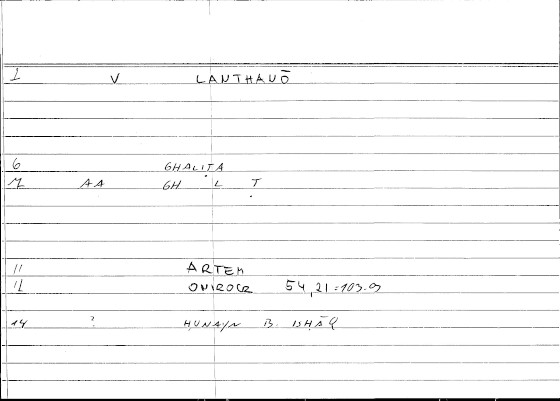 1 V LANTHANŌ
6 GHALIṬA
AA GH L Ṭ
11 ARTEM
12 ONIROCR 54,21=103.9
14 ? ḤUNAYN B. ISḤĀQ